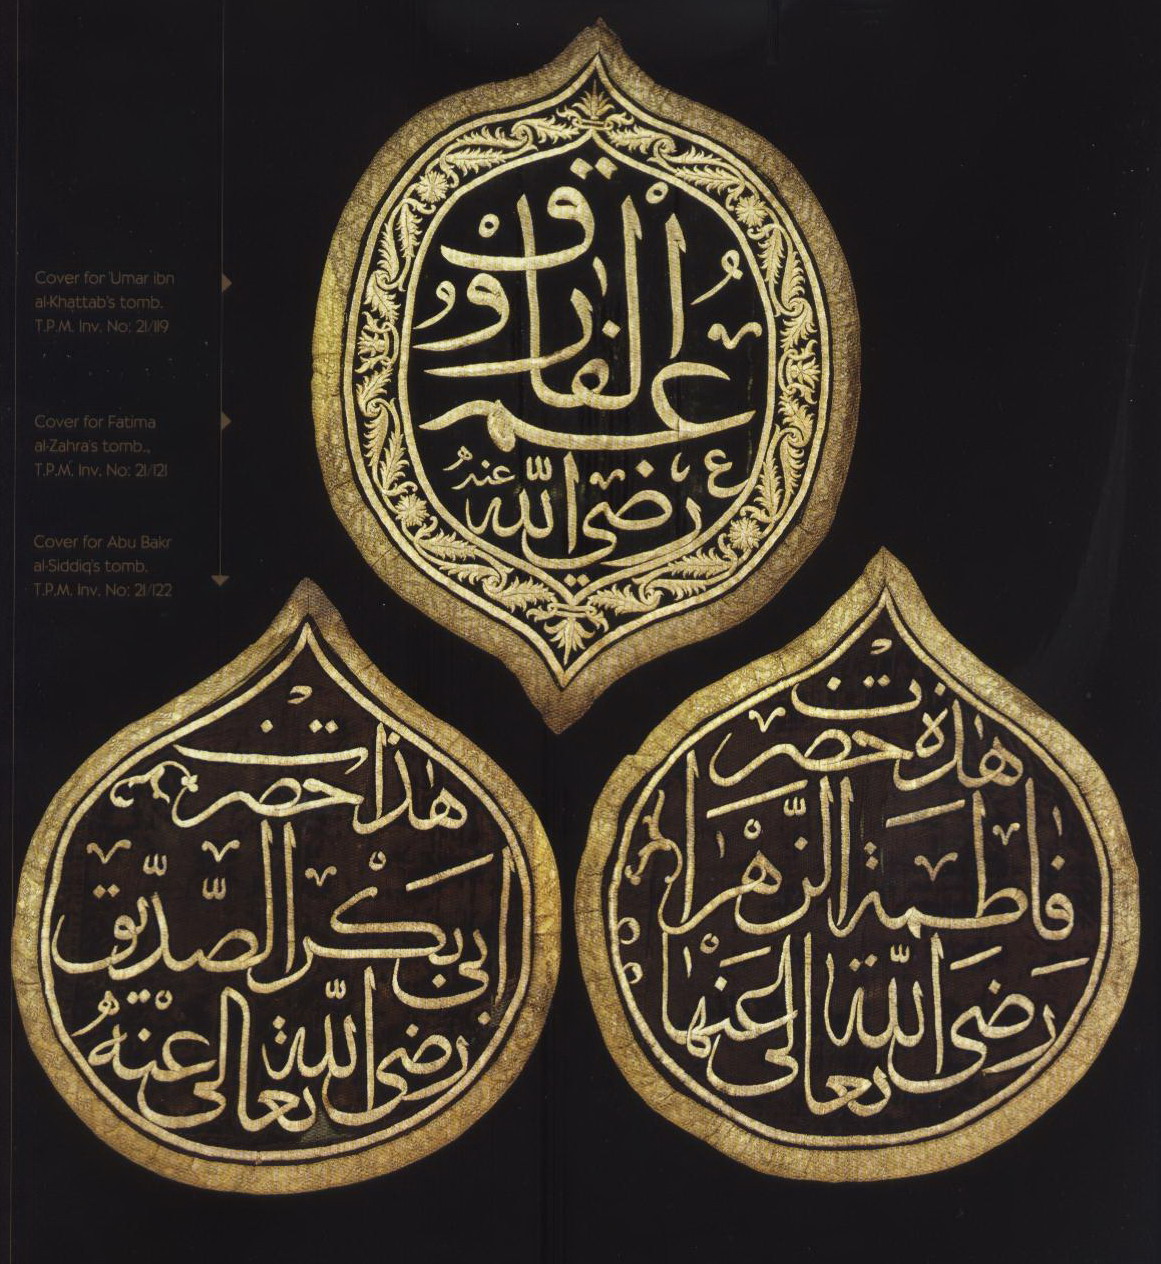 Cover for 'Umar ibn
al-Khattab's tomb.
T.P.M. Inv. No: 21/119
Cover for Fatima
al-Zahra's tomb.,
T.P.M. Inv. No: 21/121
Cover for Abu Bakr
al-Siddiq's tomb.
T.P.M. Inv. No: 21/122
الفاروق
عمر
رضي الله عنه
هذا حضرت
ابي بكر الصديق
رضى الله تعالى عنه
هذه حضرت
فاطمة الزهرا
رضى الله تعالى عنها